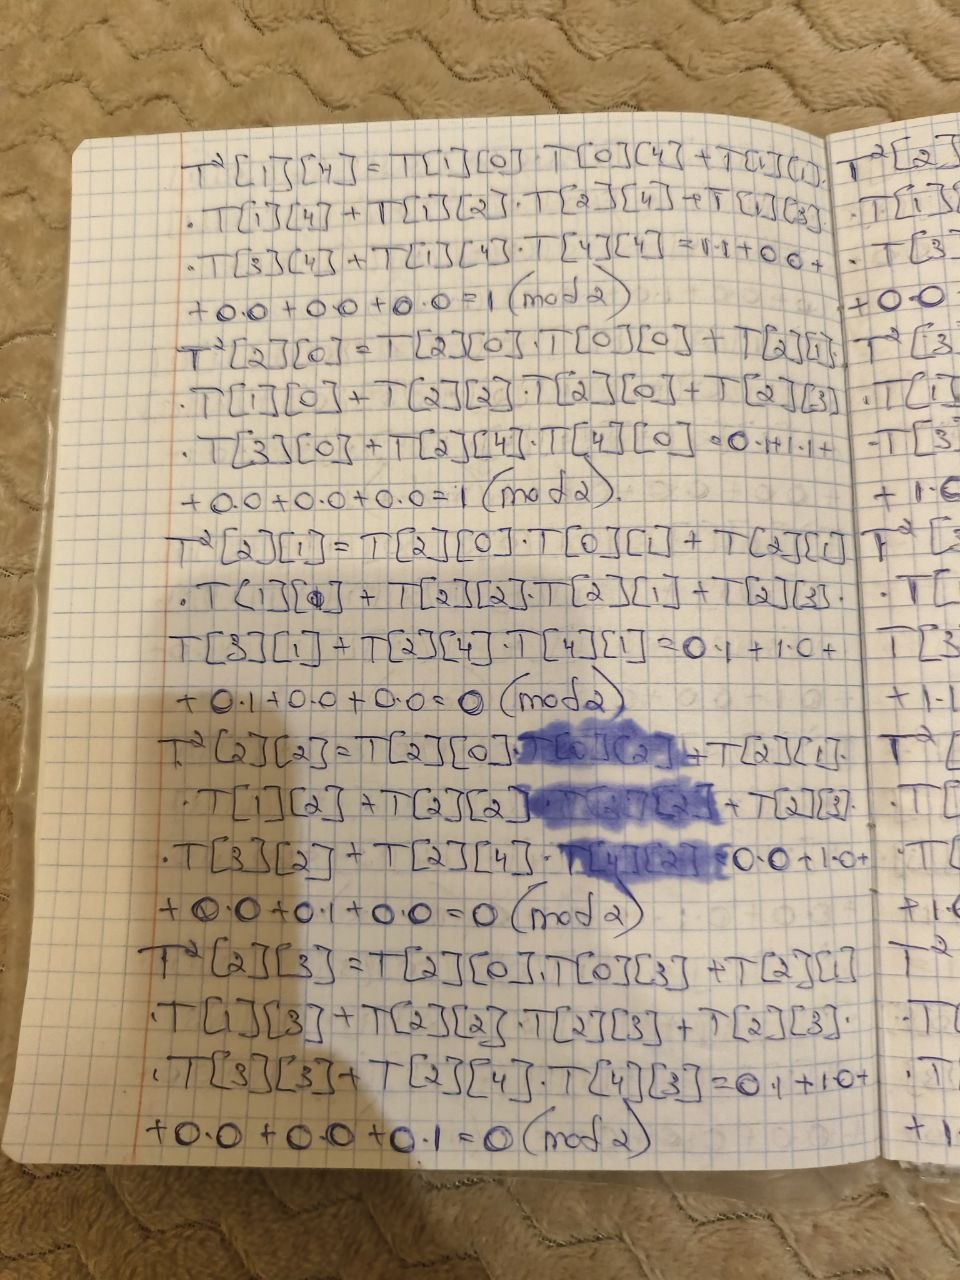 T²[1][4] = T[1][0]·T[0][4] + T[1][1]·
·T[1][4] + T[1][2]·T[2][4] + T[1][3]
·T[3][4] + T[1][4]·T[4][4] = 1·1 + 0·0 +
+ 0·0 + 0·0 + 0·0 = 1 (mod 2)
T²[2][0] = T[2][0]·T[0][0] + T[2][1]·
·T[1][0] + T[2][2]·T[2][0] + T[2][3]
·T[3][0] + T[2][4]·T[4][0] = 0·1 + 1·1 +
+ 0·0 + 0·0 + 0·0 = 1 (mod 2).
T²[2][1] = T[2][0]·T[0][1] + T[2][1]
·T[1][] + T[2][2]·T[2][1] + T[2][3]·
T[3][1] + T[2][4]·T[4][1] = 0·1 + 1·0 +
+ 0·1 + 0·0 + 0·0 = 0 (mod 2)
T²[2][2] = T[2][0]·T[0][2] + T[2][1]·
·T[1][2] + T[2][2]·T[2][2] + T[2][3]·
·T[3][2] + T[2][4]·T[4][2] = 0·0 + 1·0 +
+ 0·0 + 0·1 + 0·0 = 0 (mod 2)
T²[2][3] = T[2][0]·T[0][3] + T[2][1]
·T[1][3] + T[2][2]·T[2][3] + T[2][3]·
·T[3][3] + T[2][4]·T[4][3] = 0·1 + 1·0 +
+ 0·0 + 0·0 + 0·1 = 0 (mod 2)
T²[2]
·T[1]
·T[3]
+ 0·0
T²[3
·T[1]
·T[3
+ 1·0
T²[3
·T[
T[3
+ 1·1
T²[
·T[
·T[
+ 1·
T²
·T[
·T[
+ 1·